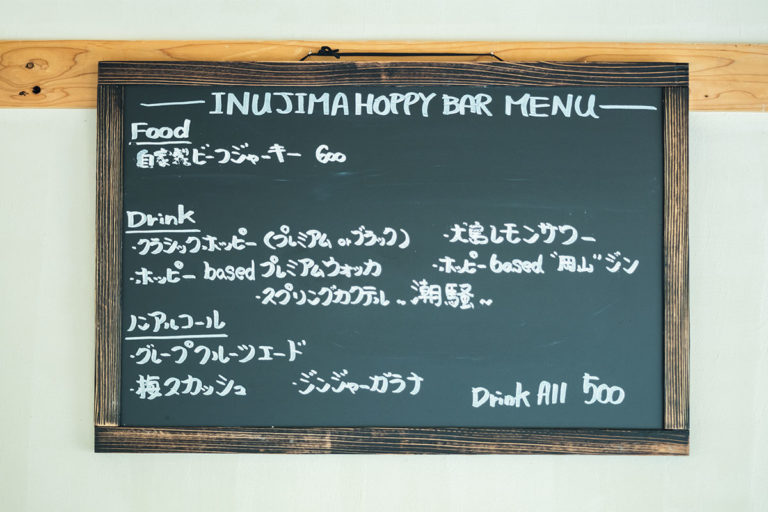 INUJIMA HOPPY BAR MENU
Food
自家製ビーフジャーキー 600
Drink
・クラシックホッピー (プレミアム or ブラック) ・犬島レモンサワー
・ホッピー based プレミアムウォッカ ・ホッピー based "岡山" ジン
・スプリングカクテル ~潮騒~
ノンアルコール
・グレープフルーツエード
・梅スカッシュ ・ジンジャーガラナ
Drink All 500